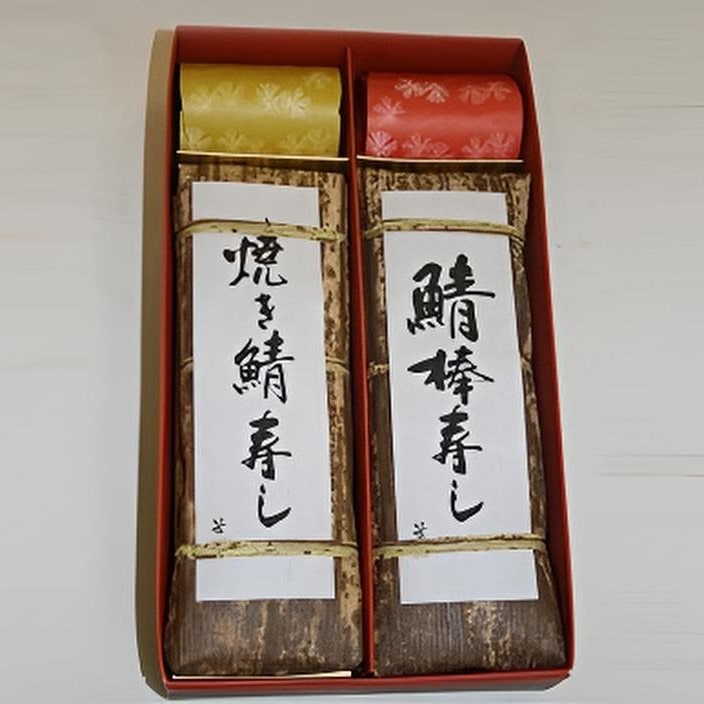 鯖棒寿し
焼き鯖寿し